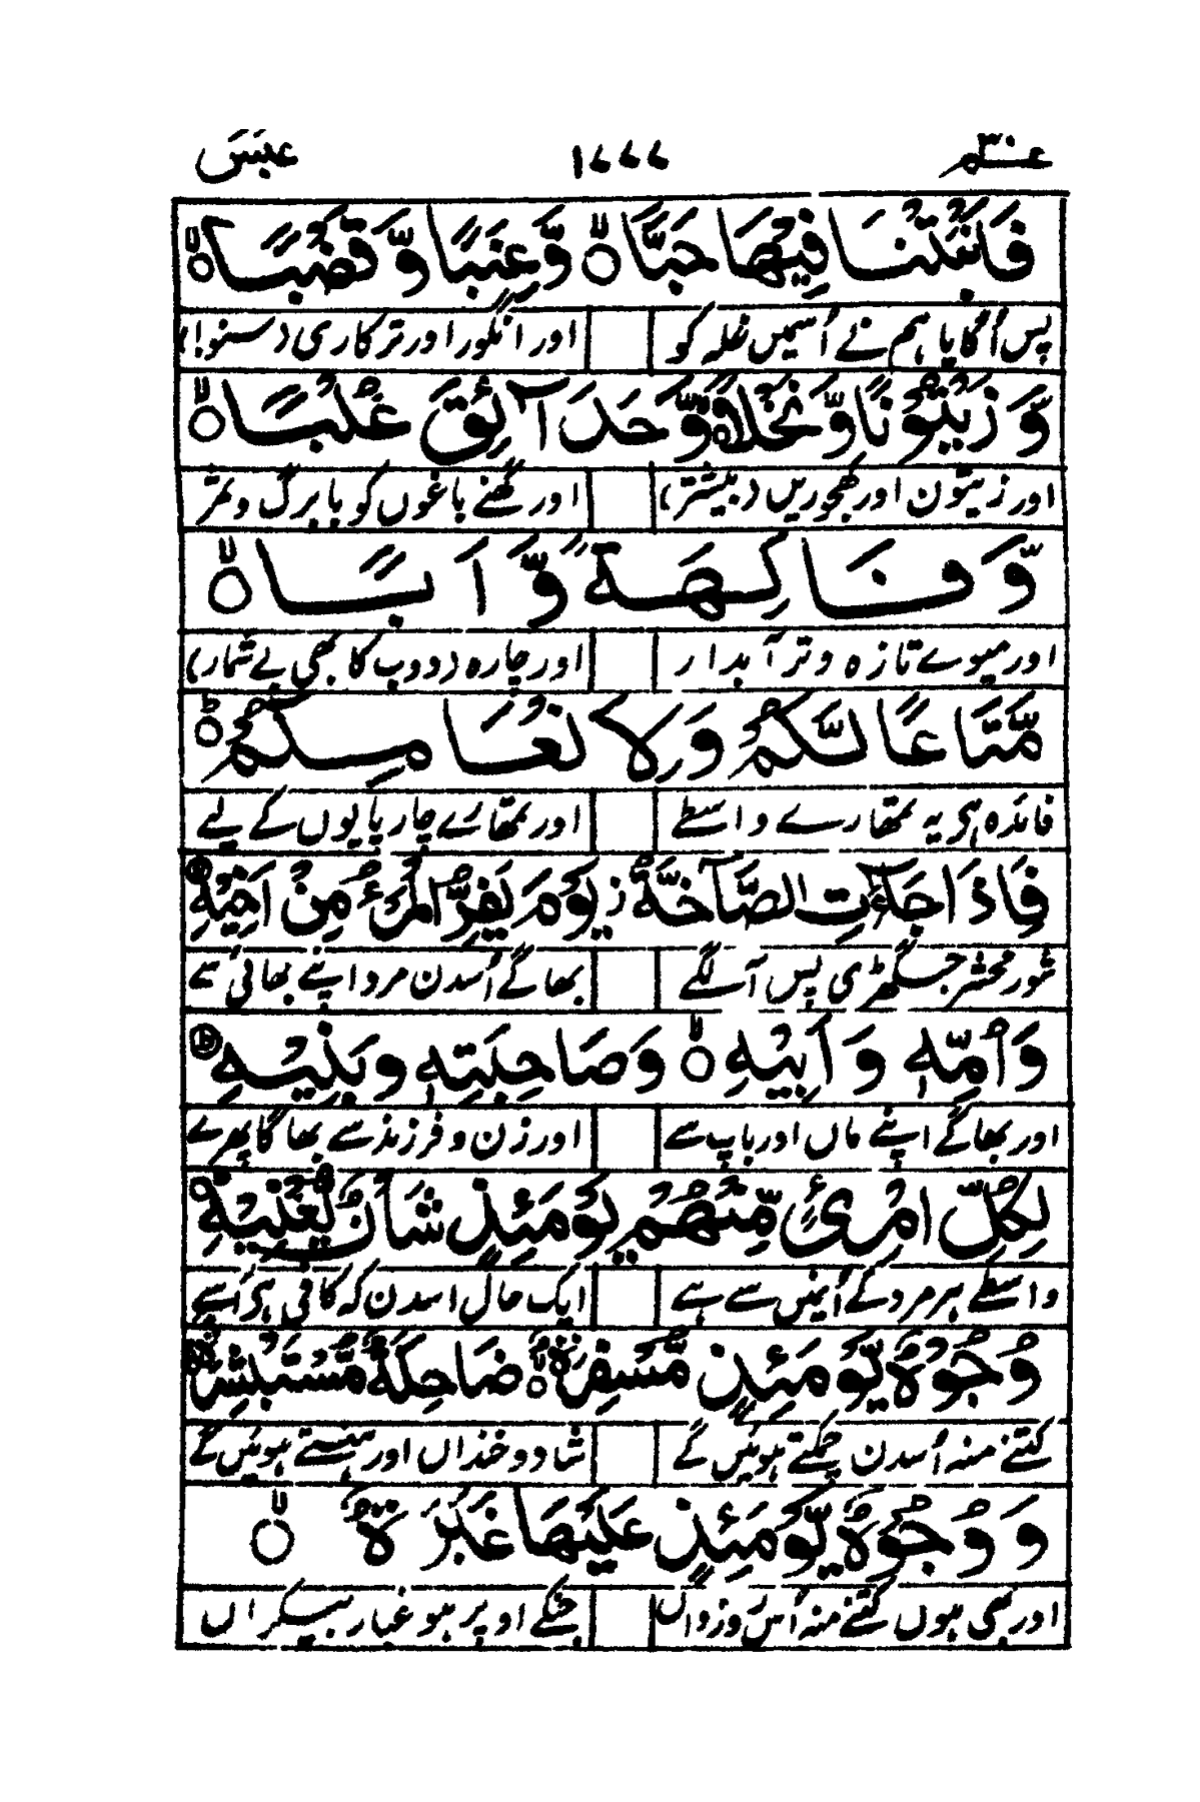 عـــم ٣٠ ١٧٧٧ عبس
فَاَنْۢبَتْنَا فِيْهَا حَبًّا ۙ وَّعِنَبًا وَّقَضْبًا ۙ
پس اُگایا ہم نے اُسمیں غلہ کو اور انگور اور ترکاری (سنو!)
وَّزَيْتُوْنًا وَّنَخْلًا ۙ وَّحَدَآئِقَ غُلْبًا ۙ
اور زیتون اور کھجوریں (بیشتر) اور گھنے باغوں کو بابرگ و ثمر
وَّفَاكِهَةً وَّاَبًّا ۙ
اور میوے تازہ و تر آبدار اور چارہ (دوب کا بھی بے شمار)
مَّتَاعًا لَّكُمْ وَلِاَنْعَامِكُمْ ؕ
فائدہ ہی یہ تمھارے واسطے اور تمھارے چارپایوں کے لیے
فَاِذَا جَآءَتِ الصَّآخَّةُ ؗ يَوْمَ يَفِرُّ الْمَرْءُ مِنْ اَخِيْهِ ۙ
شور محشر جس گھڑی پس آ لگے بھاگے اُسدن مرد اپنے بھائی سے
وَاُمِّهٖ وَاَبِيْهِ ۙ وَصَاحِبَتِهٖ وَبَنِيْهِ ؕ
اور بھاگے اپنے ماں اور باپ سے اور زن و فرزند سے بھاگا پھرے
لِكُلِّ امْرِئٍ مِّنْهُمْ يَوْمَئِذٍ شَاْنٌ يُّغْنِيْهِ ؕ
واسطے ہر مرد کے اُنمیں سے ہے ایک حال اسدن کہ کافی ہی اُسے
وُجُوْهٌ يَّوْمَئِذٍ مُّسْفِرَةٌ ۙ ضَاحِكَةٌ مُّسْتَبْشِرَةٌ
کتنے منہ اُسدن چمکتے ہوئیں گے شاد و خنداں اور ہنستے ہوئیں گے
وَوُجُوْهٌ يَّوْمَئِذٍ عَلَيْهَا غَبَرَةٌ ۙ
اور بھی ہوں کتنے منہ اُس روز واں جنکے اوپر ہو غبار بیکراں